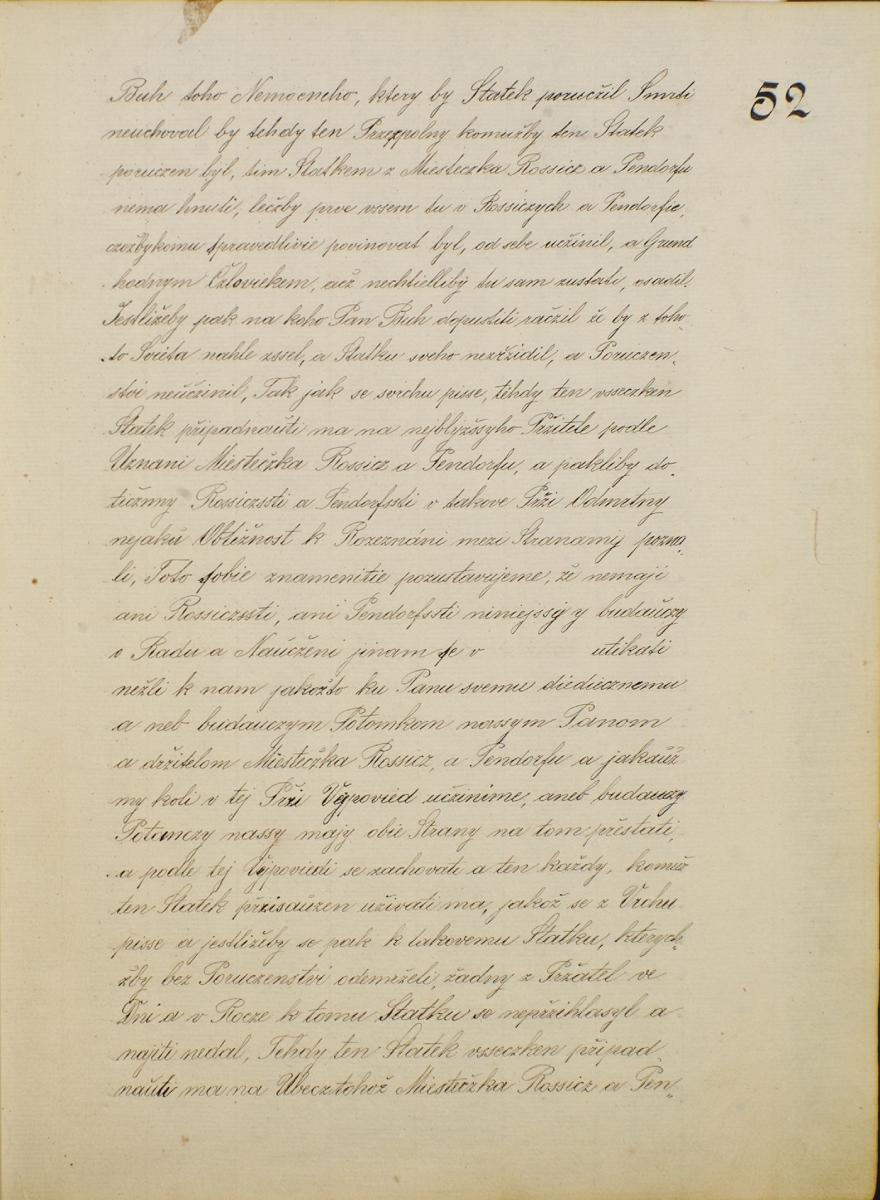 52
Buh toho Nemocneho, ktery by Statek poručžil Smrti
neuchoval by tehdy ten Przezpolny komužby ten Statek
poruczen býl, tim Statkem z Miesteczka Rossicz a Pendorfu
nema hnuti, lečžby prve vssem tu v Rossiczych a Pendorfie,
czožbykomu spravedlivie povinovat byl, od sebe učžinil, a Grund
hodnym Cžloviekem, acž nechtielliby tu sam zustati, osadil.
Jestližeby pak na koho Pan Buh dopustiti račžil že by z toho-
to Svieta nahle zssel, a Statku sveho nezržidil, a Poruczen-
stvi neučžinil, Tak jak se svrchu pisse, tehdy ten vsseczken
Statek připadnauti ma na nejblyžssyho Pržitele podle
Uznani Miestečžka Rossicz a Pendorfu, a pakliby do-
tužnny Rossiczssti a Pendorfssti v takove Prži Odmrtny
nejaku Obtižnost k Rozeznáni mezi Stranamij pozna-
li, Toto sobie znamenitie pozustavujeme, že nemaji
ani Rossiczssti, ani Pendorfssti niniejssij y budauczy
o Radu a Naučženi jinam se v utikati
nežli k nam jakožto ku Panu svemu diediecznemu
a neb budauczym Potomkom nassym Panom
a držitelom Miestečžka Rossicz, a Pendorfu a jakauž-
my koli v tej Prži Vypovied učžinime, aneb budauczy
Potomczy nassy majy obie Strany na tom přestati,
a podle tej Vypoviedi se zachovati a ten každy, komuž
ten Statek přisauzen uživati ma, jakož se z Vrchu
pisse a jestližeby se pak k takovemu Statku, kterych-
žby bez Poruczenstvi odemrželi, žadny z Pržatel ve
Dni a v Rocze k tomu Statku se nepržihlasyl a
najiti nedal, Tehdy ten Statek vsseczken připad-
nauti ma na Ubecz tohož Miestečžka Rossicz a Pen-